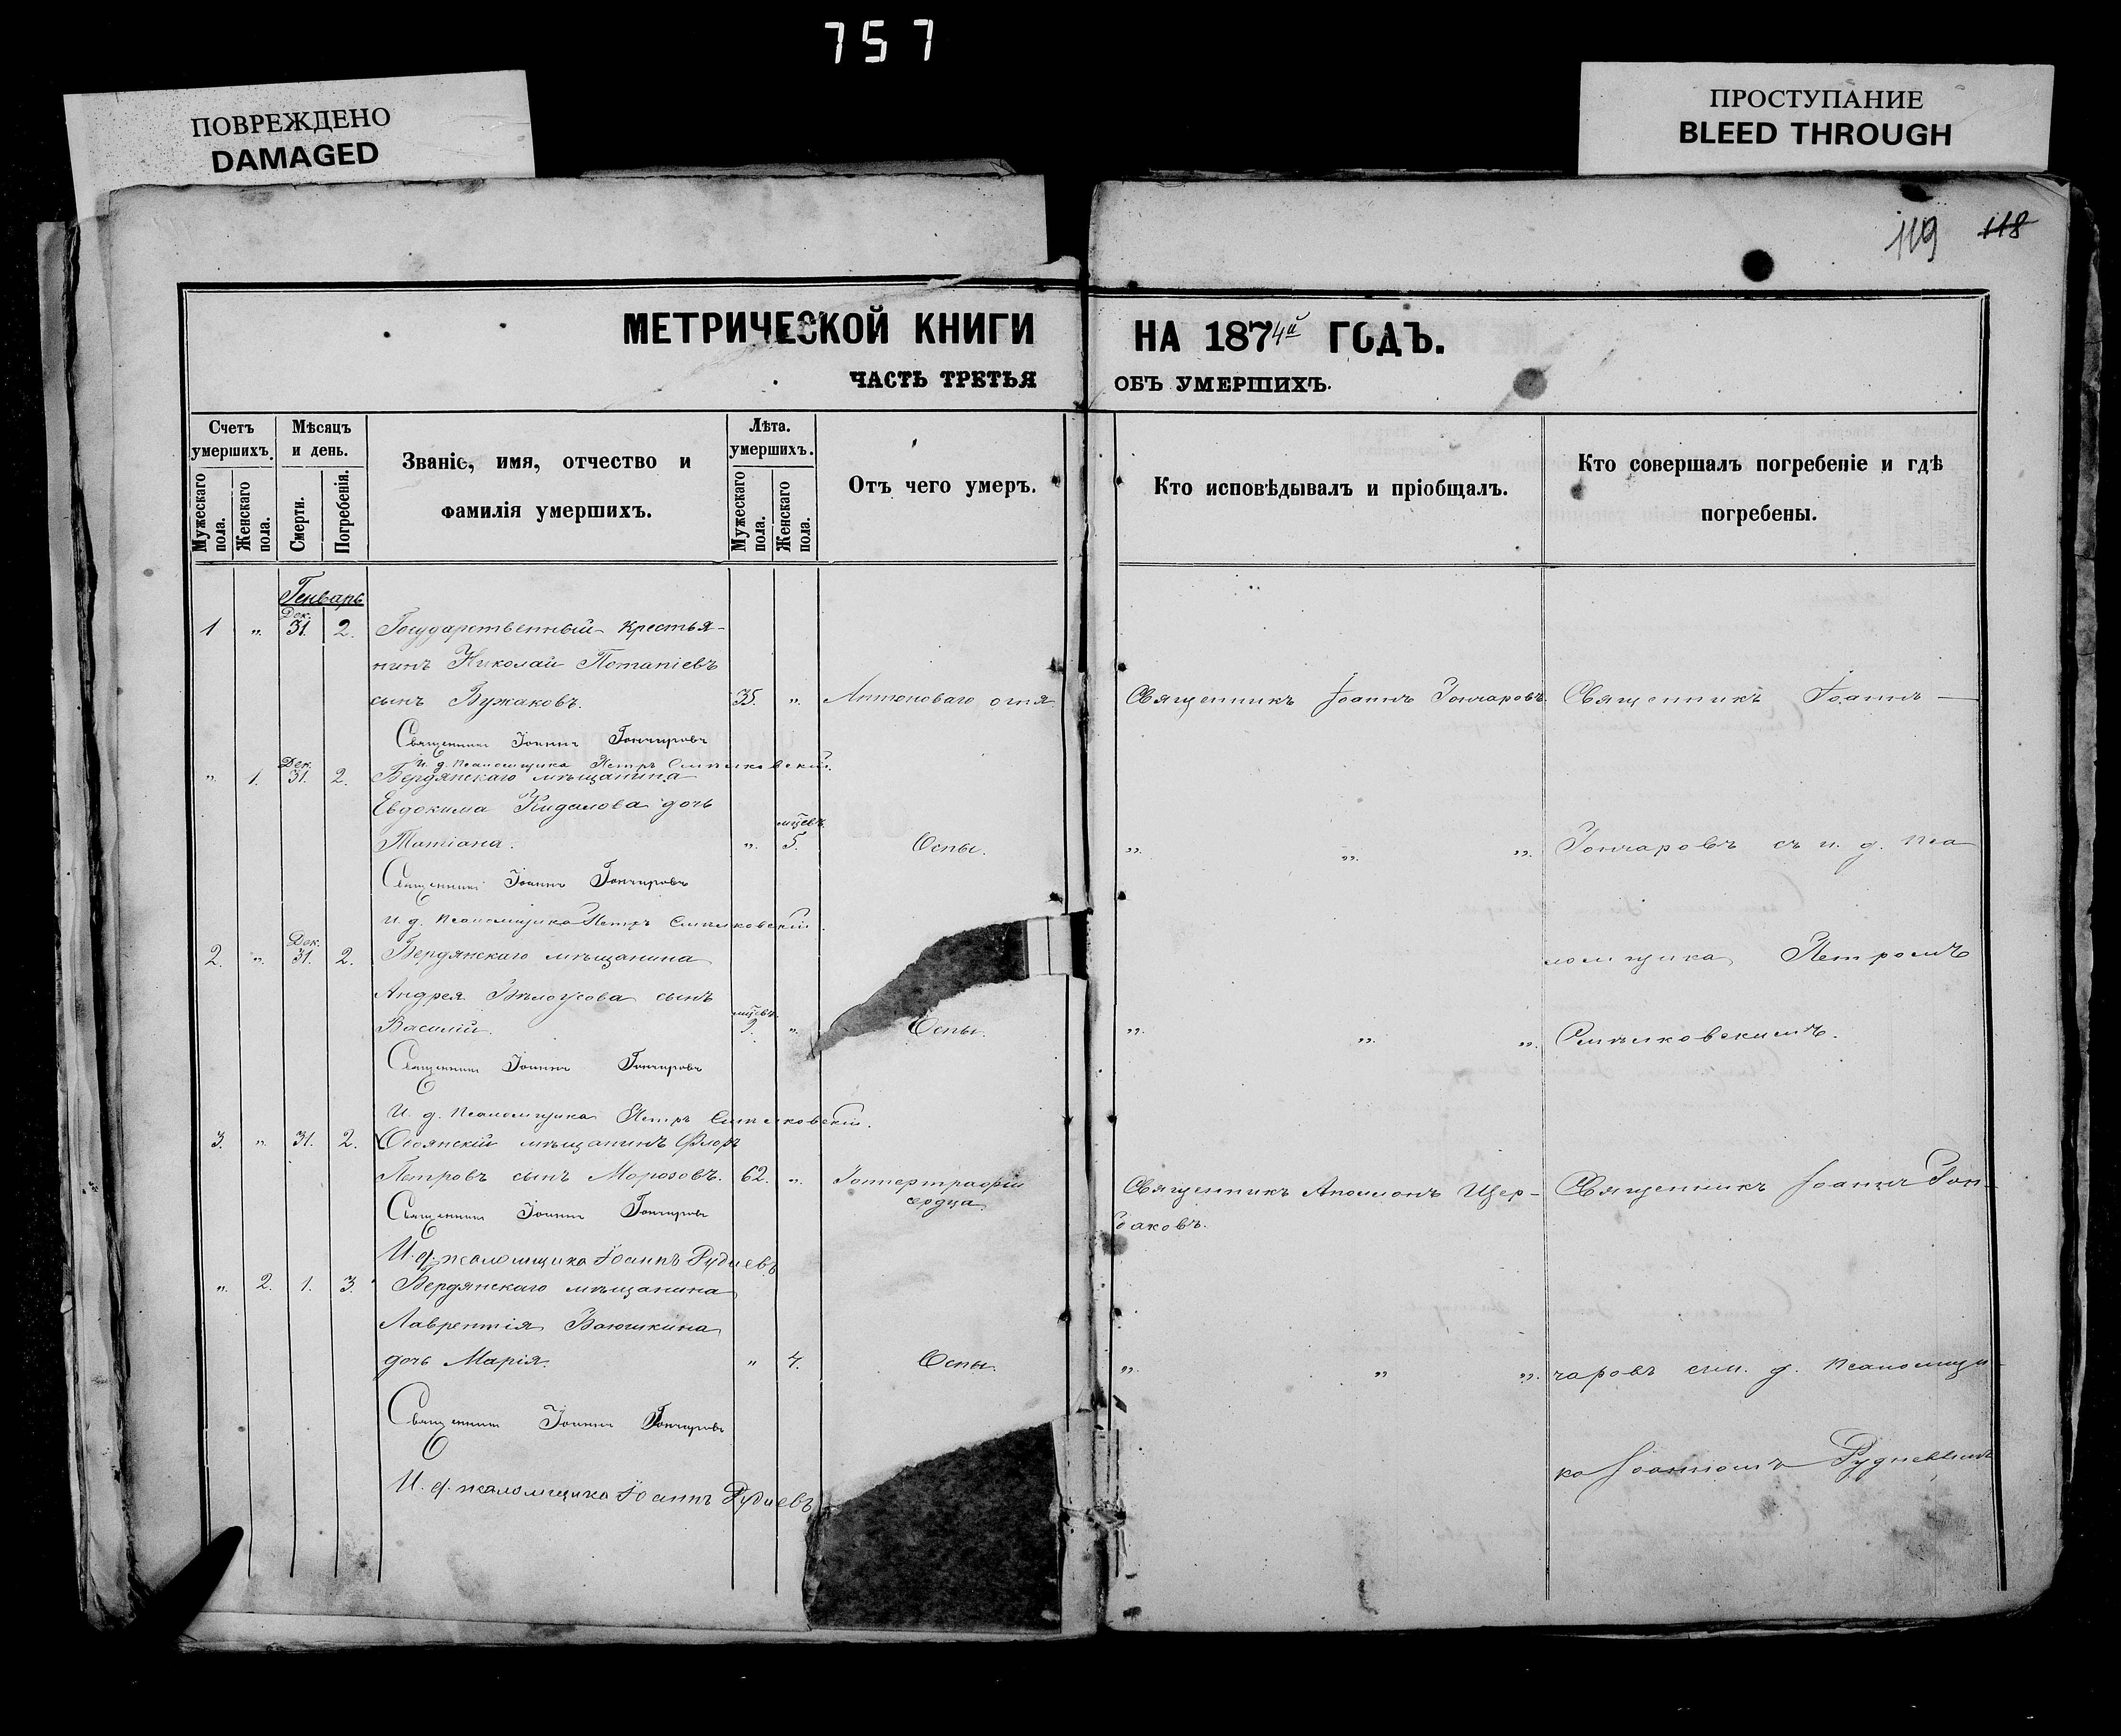 757
ПОВРЕЖДЕНО
DAMAGED
ПРОСТУПАНИЕ
BLEED THROUGH
119 118
МЕТРИЧЕСКОЙ КНИГИ НА 1874й ГОДЪ.
ЧАСТЬ ТРЕТЬЯ ОБЪ УМЕРШИХЪ.
Счетъ умершихъ.
Мужескаго пола.
Женскаго пола.
Мѣсяцъ и день.
Смерти.
Погребенія.
Званіе, имя, отчество и
фамилія умершихъ.
Лѣта. умершихъ.
Мужескаго пола.
Женскаго пола.
Отъ чего умеръ.
Кто исповѣдывалъ и пріобщалъ.
Кто совершалъ погребеніе и гдѣ
погребены.
Генварь
1 „ Дек. 31. 2. Государственный крестья-
нинъ Николай Потапіевъ
сынъ Вужаковъ. 35. „ Антоноваго огня Священникъ Іоаннъ Гончаровъ. Священникъ Іоаннъ
Священникъ Іоаннъ Гончаровъ
И. д. Псаломщика Петръ
„ 1. Дек. 31. 2. Бердянскаго мѣщанина
Евдокима Кидалова дочь
Татіана. „ мцевъ 5. Оспы. „ „ „ Гончаровъ съ и. д. пса
Священникъ Іоаннъ Гончаровъ
И. д. Псаломщика Петръ
2. „ Дек. 31. 2. Бердянскаго мѣщанина ломщика Петромъ
Андрея Бѣлоусова сынъ
Василій. мцевъ „ Оспы. „ „ „
Священникъ Іоаннъ Гончаровъ
И. д. Псаломщика Петръ
3. „ 31. 2. мѣщанинъ Флоръ
Петровъ сынъ Морозовъ. 62. „ сердца Священникъ Аполлонъ Щер-
баковъ. Священникъ Іоаннъ Гон-
Священникъ Іоаннъ Гончаровъ
И. д. псаломщика Іоаннъ Рудневъ
„ 2. 1. 3. Бердянскаго мѣщанина
Лаврентія Ваюшкина
дочь Марія. „ 4. Оспы. „ „ „ чаровъ съ и. д. псаломщи-
Священникъ Іоаннъ Гончаровъ
ка Іоанномъ Рудневымъ
И. д. псаломщика Іоаннъ Рудневъ